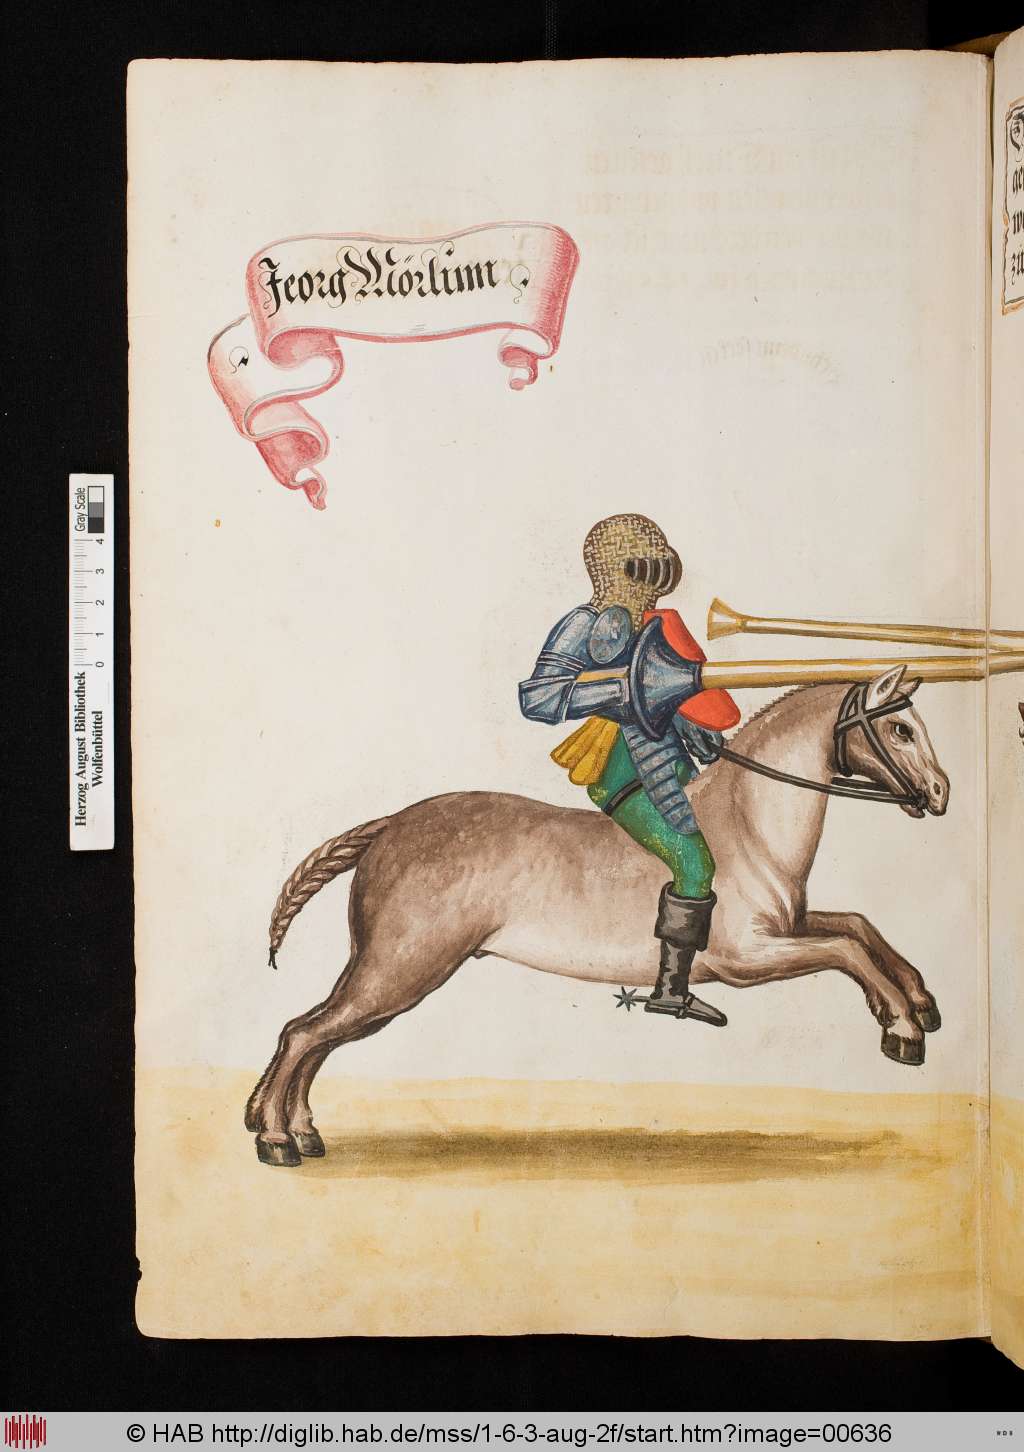 Jeorg Mörlinn
ge
we
zü
Gray Scale
0 1 2 3 4
Herzog August Bibliothek
Wolfenbüttel
© HAB http://diglib.hab.de/mss/1-6-3-aug-2f/start.htm?image=00636